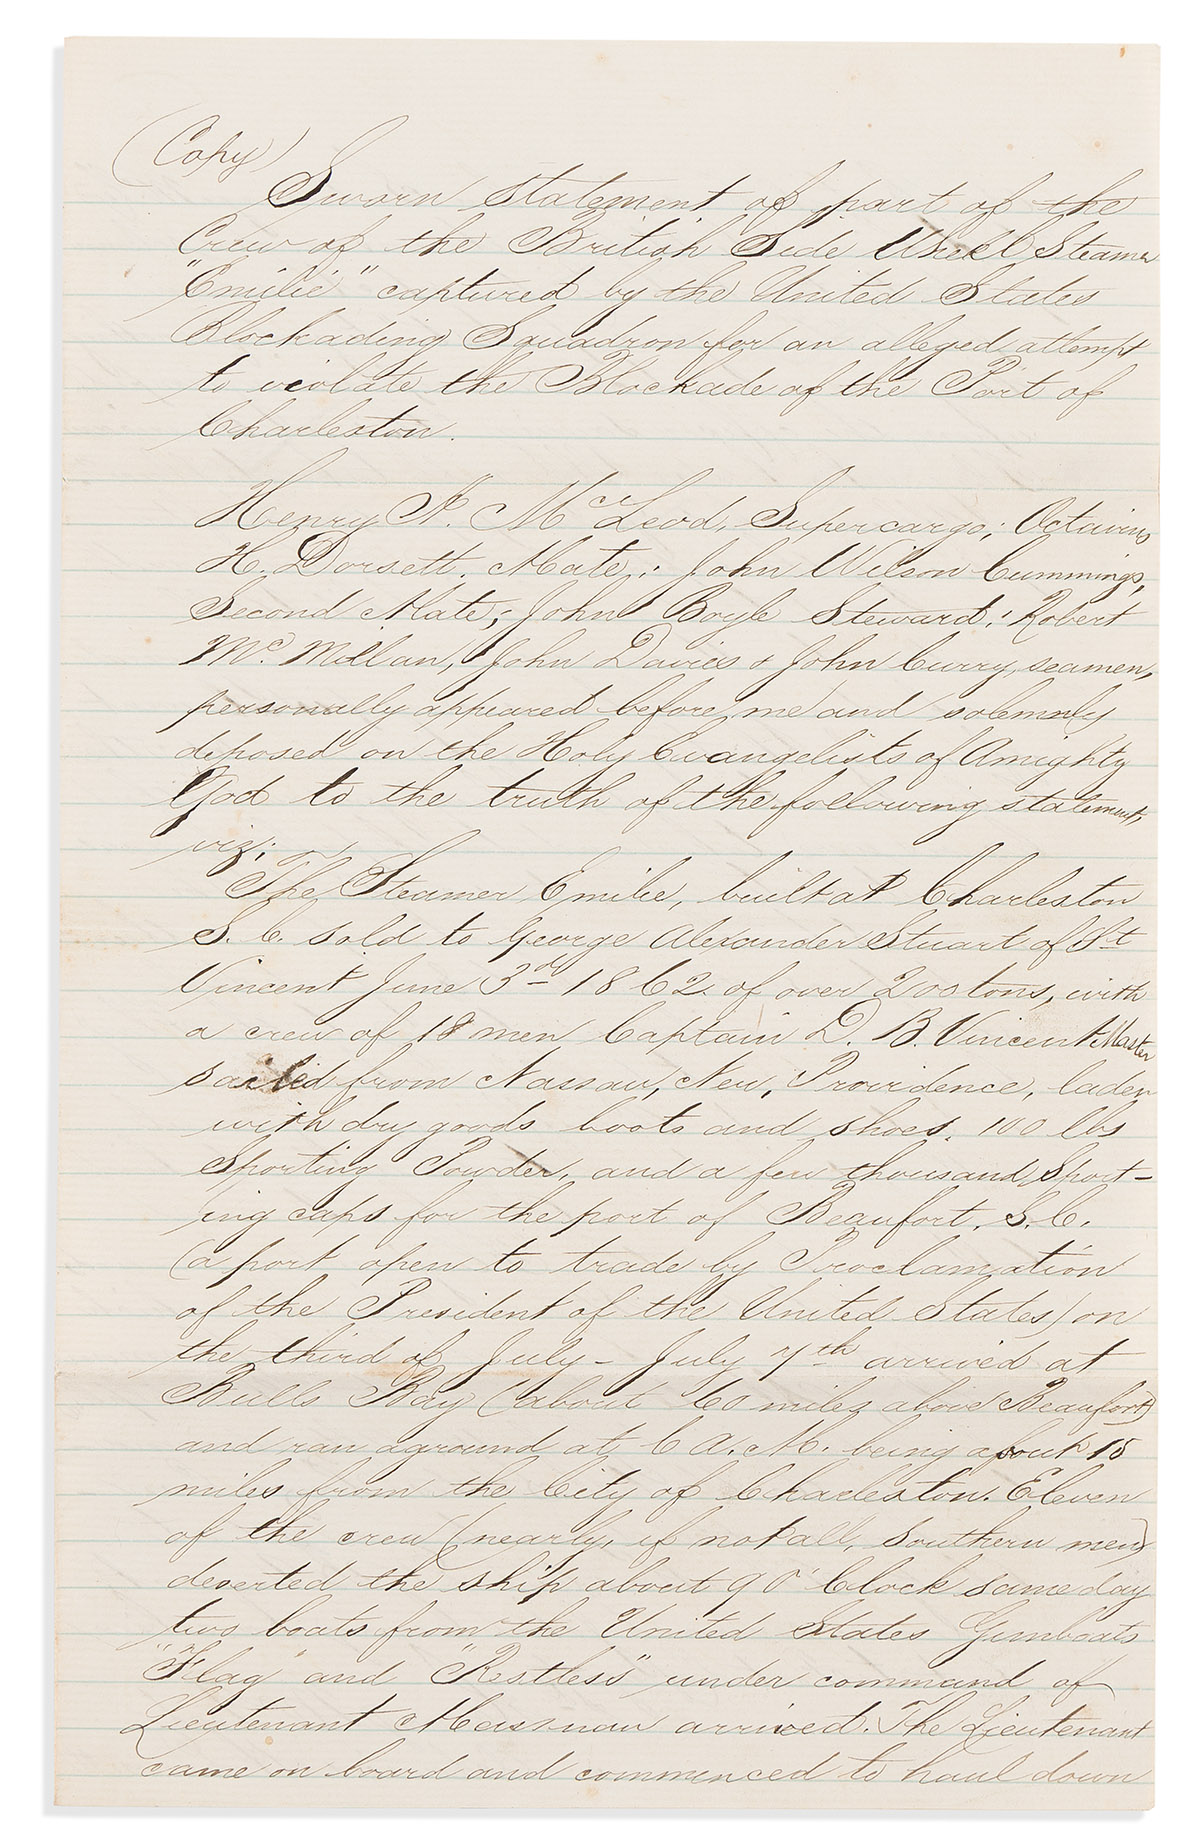 (Copy)
Sworn statement of part of the
Crew of the British Side Wheel Steamer
"Emilie" captured by the United States
Blockading Squadron for an alleged attempt
to violate the Blockade of the Port of
Charleston.
Henry A. McLeod, Supercargo; Octavius
H. Dorsett, Mate; John Wilson Cummings,
Second Mate; John Boyle Steward; Robert
Mc. Millan, John Davies & John Curry, seamen,
personally appeared before me and solemnly
deposed on the Holy Evangelists of Amighty
God to the truth of the following statement,
viz;
The Steamer Emilie, built at Charleston
S. C. sold to George Alexander Stuart of St
Vincent June 3rd 1862. of over 200 tons, with
a crew of 18 men Captain D. B. Vincent Master
sailed from Nassau, New, Providence, laden
with dry goods boots and shoes, 100 lbs
Sporting Powder, and a few thousand Sport-
ing caps for the port of Beaufort, S.C.
(a port open to trade by Proclamation
of the President of the United States) on
the third of July - July 7th arrived at
Bulls Bay (about 60 miles above Beaufort)
and ran aground at 6 A.M. being about 15
miles from the City of Charleston. Eleven
of the crew (nearly, if not all, southern men)
deserted the ship about 9 O'Clock same day
two boats from the United States Gunboats
"Flag" and "Restless" under command of
Lieutenant arrived. The Lieutenant
came on board and commenced to haul down